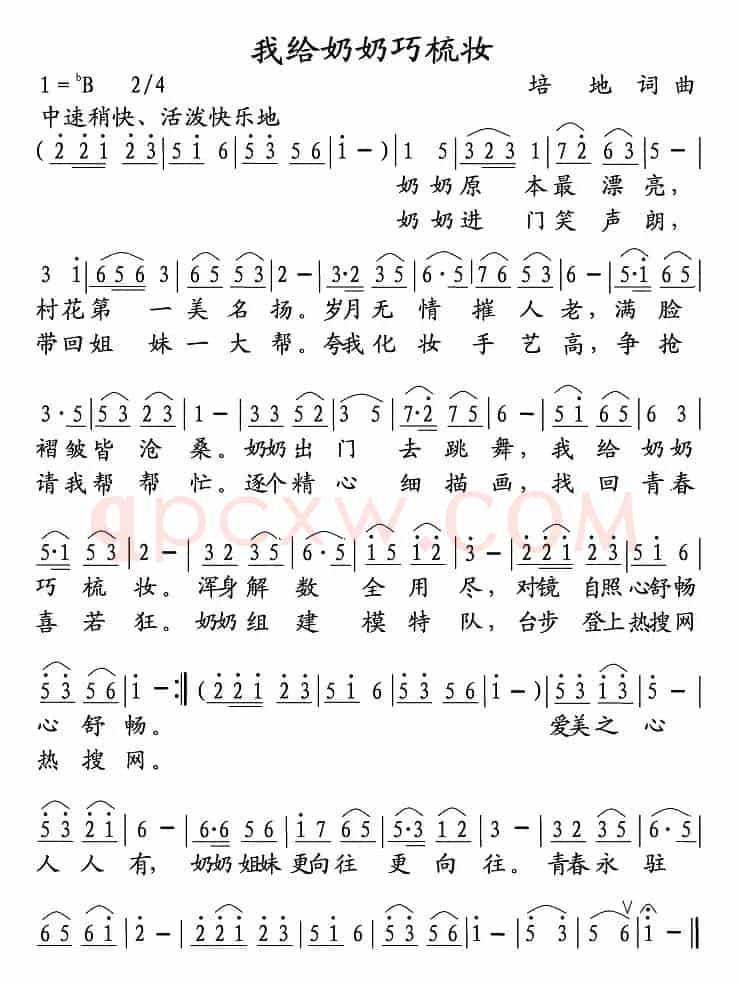 我给奶奶巧梳妆
1 = ᵇB 2/4 培 地 词 曲
中速稍快、活泼快乐地
( 2̇ 2̇ 1̇ 2̇ 3̇ | 5 1̇ 6 | 5̇ 3̇ 5 6 | 1̇ – ) | 1 5 | 3 2 3 1 | 7 2̇ 6 3 | 5 – |
奶 奶 原 本 最 漂 亮，
奶 奶 进 门 笑 声 朗，
3 1̇ | 6 5 6 3 | 6 5 5 3 | 2 – | 3·2 3 5 | 6 5·2 | 7 6 5 3 | 6 – | 5·1̇ 6 5 |
村 花 第 一 美 名 扬。岁月 无 情 摧 人 老，满 脸
带 回 姐 妹 一 大 帮。夸我 化 妆 手 艺 高，争 抢
3·5 | 5 3 2 3 | 1 – | 3 3 5 2 | 3 5 | 7·2̇ 7 5 | 6 – | 5 1̇ 6 5 | 6 3 |
褶 皱 皆 沧 桑。奶奶 出 门 去 跳 舞，我 给 奶 奶
请 我 帮 帮 忙。逐个 精 心 细 描 画，找 回 青 春
5·1 5 3 | 2 – | 3 2 3 5 | 6·5 | 1̇ 5 1̇ 2̇ | 3̇ – | 2̇ 2̇ 1̇ 2̇ 3̇ | 5 1̇ 6 |
巧 梳 妆。浑身 解 数 全 用 尽，对镜 自照 心舒畅
喜 若 狂。奶奶 组 建 模 特 队，台步 登上 热搜网
5̇ 3̇ 5 6 | 1̇ – :‖ ( 2̇ 2̇ 1̇ 2̇ 3̇ | 5 1̇ 6 | 5̇ 3̇ 5 6 | 1̇ – ) | 5̇ 1̇ 3̇ 3̇ | 5̇ – |
心 舒 畅。 爱美 之 心
热 搜 网。
5̇ 3̇ 2̇ 1̇ | 6 – | 6·6 5 6 | 1̇ 7 6 5 | 5·3 1̇ 2̇ | 3̇ – | 3̇ 2̇ 3̇ 5̇ | 6·5 |
人 人 有， 奶奶 姐妹 更向 往 更 向 往。 青春 永 驻
6 5 6 1̇ | 2̇ – | 2̇ 2̇ 1̇ 2̇ 3̇ | 5 1̇ 6 | 5̇ 3̇ 2̇ 3̇ | 1̇ – | 5̇ 3̇ | 5 6 ∨ | 1̇ – ‖
qpcxw.COM